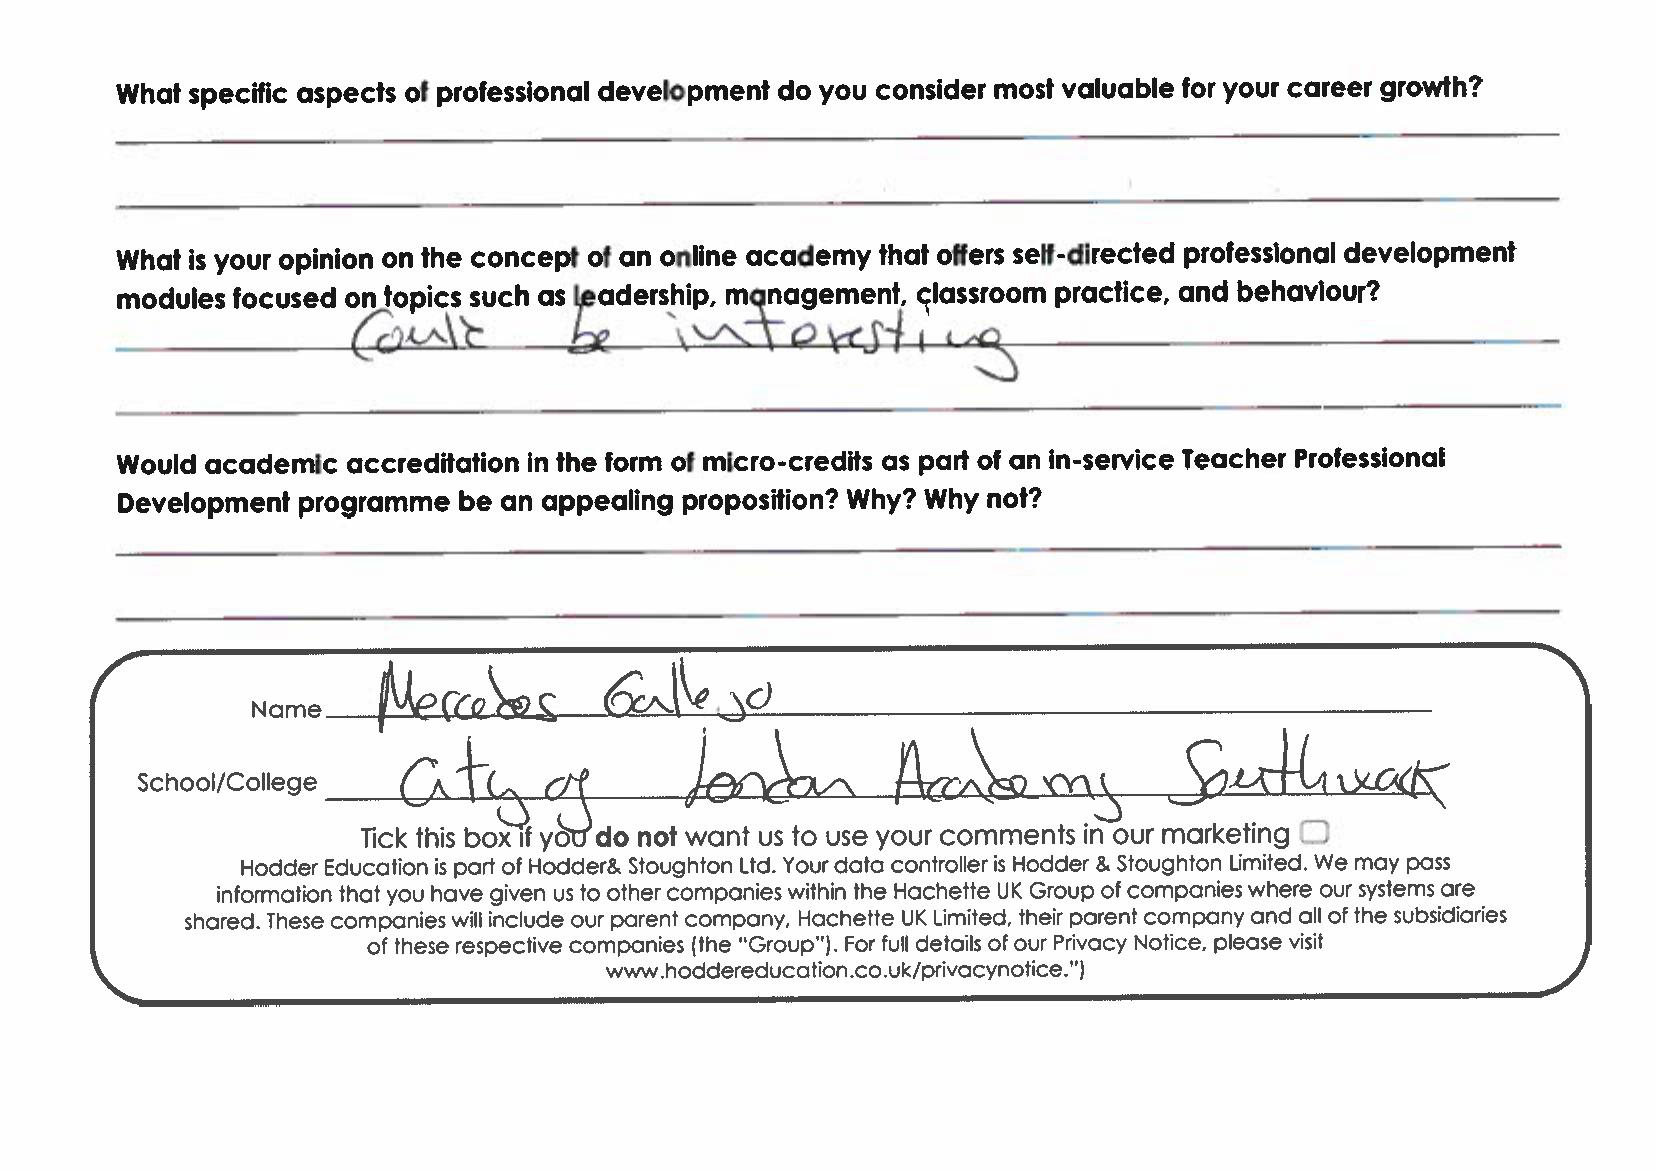 What specific aspects of professional development do you consider most valuable for your career growth?
What is your opinion on the concept of an online academy that offers self-directed professional development
modules focused on topics such as leadership, management, classroom practice, and behaviour?
Could be interesting
Would academic accreditation in the form of micro-credits as part of an in-service Teacher Professional
Development programme be an appealing proposition? Why? Why not?
Name Mercedes Gallego
School/College City of London Academy Southwark
Tick this box if you do not want us to use your comments in our marketing
Hodder Education is part of Hodder& Stoughton Ltd. Your data controller is Hodder & Stoughton Limited. We may pass
information that you have given us to other companies within the Hachette UK Group of companies where our systems are
shared. These companies will include our parent company, Hachette UK Limited, their parent company and all of the subsidiaries
of these respective companies (the "Group"). For full details of our Privacy Notice, please visit
www.hoddereducation.co.uk/privacynotice.")